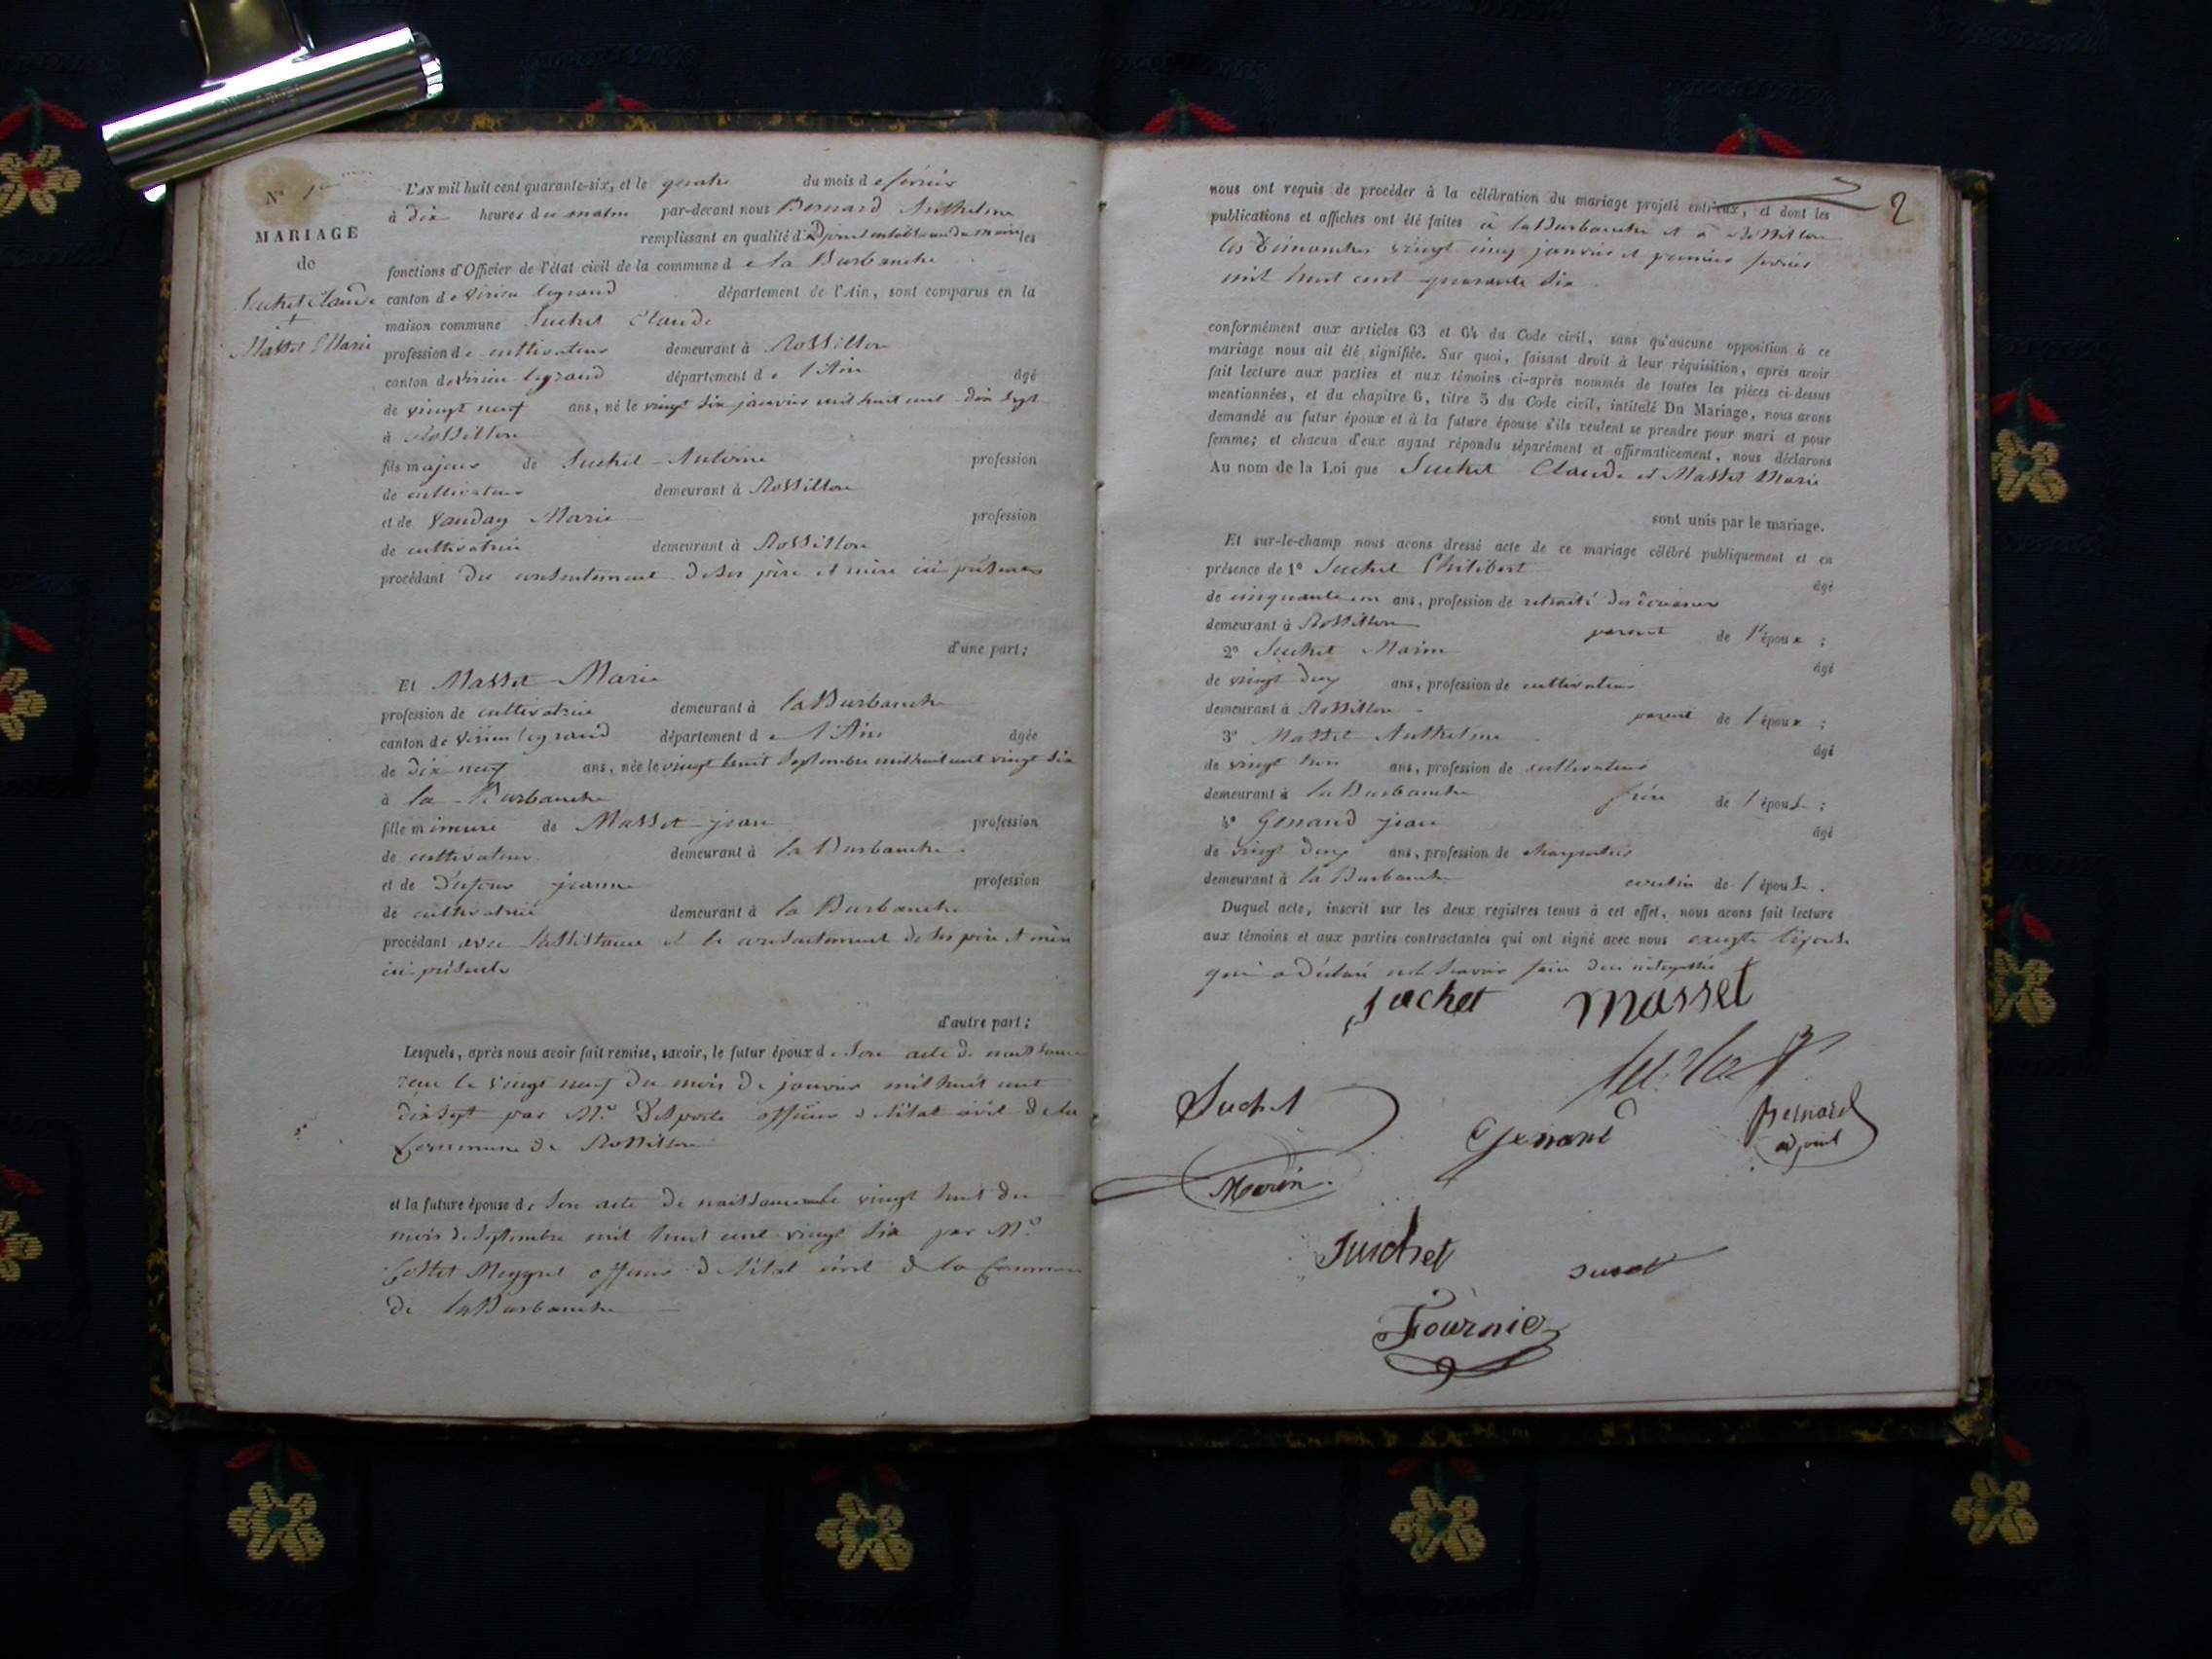 N° 1er
MARIAGE
de
Suchet Claude
+
Masset Marie
L'AN mil huit cent quarante-six, et le quatre du mois de février
à dix heures du matin par-devant nous Bernard Anthelme
remplissant en qualité d'adjoint en l'absence du maire les
fonctions d'Officier de l'état civil de la commune de la Burbanche
canton de Virieu legrand département de l'Ain, sont comparus en la
maison commune Suchet Claude
profession de cultivateur demeurant à Rossillon
canton de Virieu legrand département de l'Ain âgé
de vingt neuf ans, né le vingt six janvier mil huit cent dix sept
à Rossillon
fils majeur de Suchet Antoine profession
de cultivateur demeurant à Rossillon
et de Vauday Marie profession
de cultivatrice demeurant à Rossillon
procédant du consentement de ses père et mère ici présents
d'une part;
Et Masset Marie
profession de cultivatrice demeurant à la Burbanche
canton de Virieu legrand département de l'Ain âgée
de dix neuf ans, née le vingt huit septembre mil huit cent vingt six
à la Burbanche
fille mineure de Masset jean profession
de cultivateur demeurant à la Burbanche
et de Dufour jeanne profession
de cultivatrice demeurant à la Burbanche
procédant avec l'assistance et le consentement de ses père et mère
ici présents
d'autre part;
Lesquels, après nous avoir fait remise, savoir, le futur époux de son acte de naissance
reçu le vingt neuf du mois de janvier mil huit cent
dix sept par Mr Delporte officier de l'état civil de la
Commune de Rossillon
et la future épouse de son acte de naissance reçu le vingt huit du
mois de septembre mil huit cent vingt six par Mr
officier de l'état civil de la Commune
de la Burbanche
2
nous ont requis de procéder à la célébration du mariage projeté entr'eux, et dont les
publications et affiches ont été faites à la Burbanche et à Rossillon
les dimanches vingt cinq janvier et premier février
mil huit cent quarante six
conformément aux articles 63 et 64 du Code civil, sans qu'aucune opposition à ce
mariage nous ait été signifiée. Sur quoi, faisant droit à leur réquisition, après avoir
fait lecture aux parties et aux témoins ci-après nommés de toutes les pièces ci-dessus
mentionnées, et du chapitre 6, titre 5 du Code civil, intitulé Du Mariage, nous avons
demandé au futur époux et à la future épouse s'ils veulent se prendre pour mari et pour
femme; et chacun d'eux ayant répondu séparément et affirmativement, nous déclarons
Au nom de la Loi que Suchet Claude et Masset Marie
sont unis par le mariage.
Et sur-le-champ nous avons dressé acte de ce mariage célébré publiquement et en
présence de 1° Suchet Philibert âgé
de cinquante un ans, profession de retraité des douanes
demeurant à Rossillon parent de l'époux;
2° Suchet Marin âgé
de vingt deux ans, profession de cultivateur
demeurant à Rossillon parent de l'époux;
3° Masset Anthelme âgé
de vingt trois ans, profession de cultivateur
demeurant à la Burbanche frère de l'épouse;
4° Genand jean âgé
de vingt deux ans, profession de charpentier
demeurant à la Burbanche cousin de l'épouse.
Duquel acte, inscrit sur les deux registres tenus à cet effet, nous avons fait lecture
aux témoins et aux parties contractantes qui ont signé avec nous excepté l'épouse
qui a déclaré ne le savoir faire
Suchet Masset
Suchet
Genand Bernard
adjoint
Marin
Suchet
Fournier